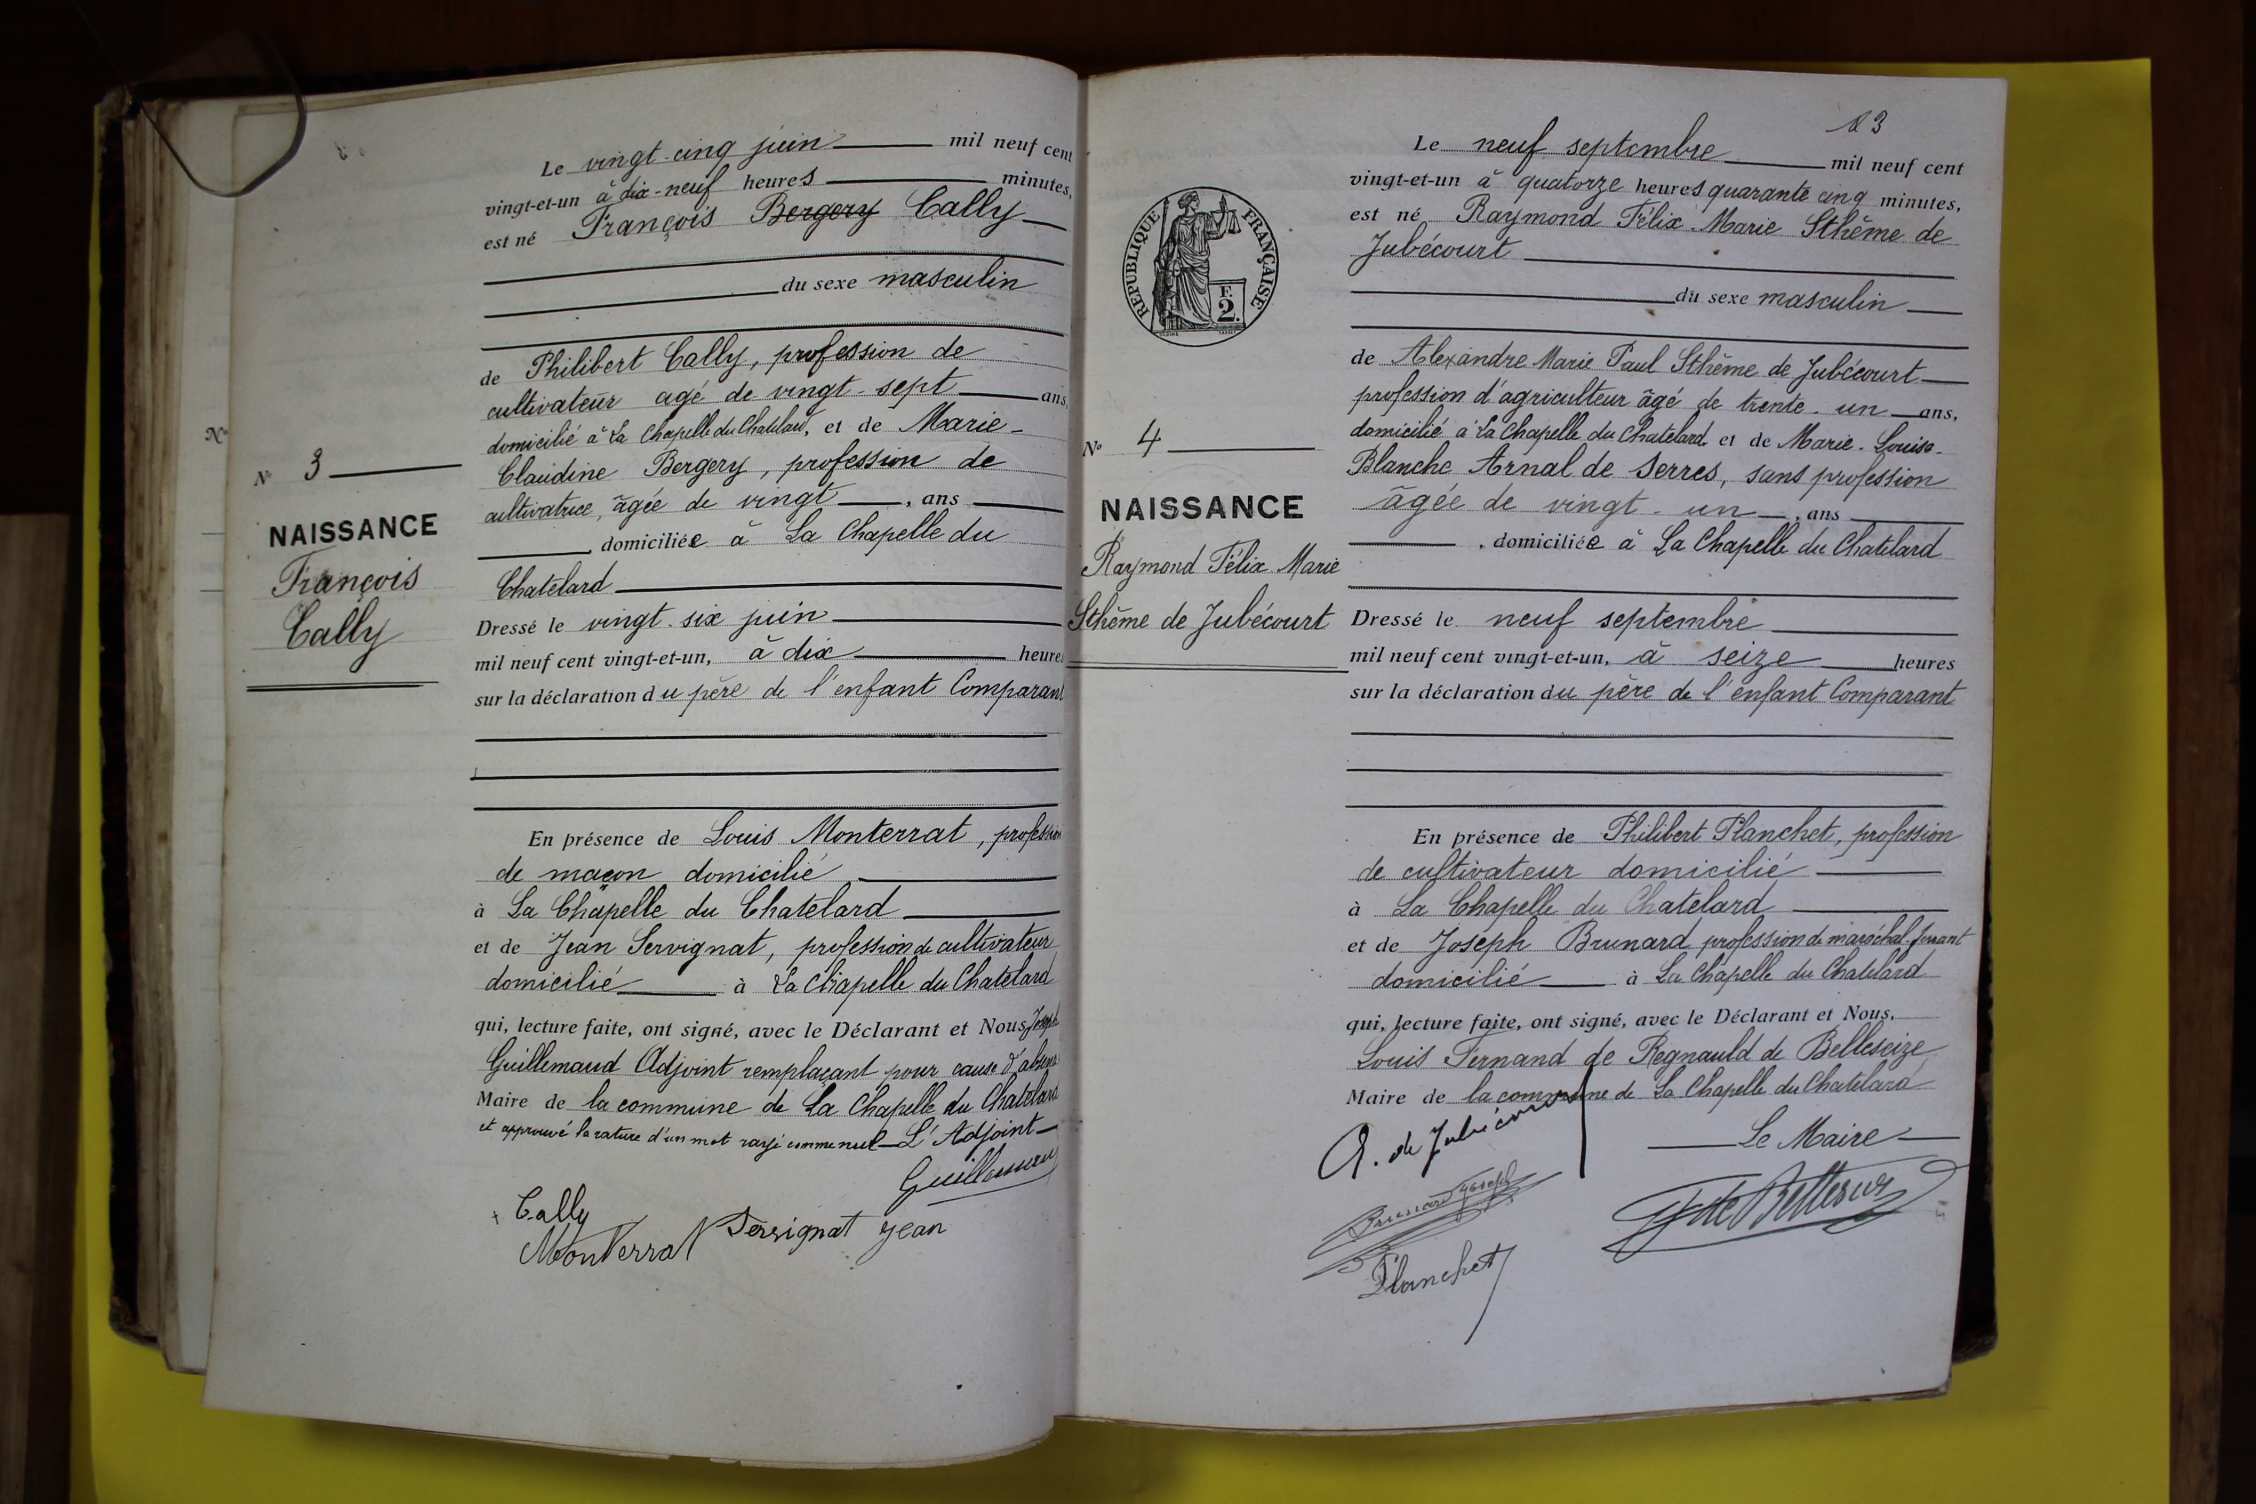 Le vingt-cinq juin mil neuf cent
vingt-et-un à dix-neuf heures minutes,
est né François Bergery Cally
du sexe masculin
de Philibert Cally, profession de
cultivateur agé de vingt-sept ans,
domicilié à La Chapelle du Chatelard, et de Marie-
Claudine Bergery, profession de
cultivatrice, âgée de vingt, ans
, domiciliée à La Chapelle du
Chatelard
Dressé le vingt-six juin
mil neuf cent vingt-et-un, à dix heures
sur la déclaration du père de l'enfant Comparant
En présence de Louis Monterrat, profession
de maçon domicilié
à La Chapelle du Chatelard
et de Jean Servignat, profession de cultivateur
domicilié à La Chapelle du Chatelard
qui, lecture faite, ont signé, avec le Déclarant et Nous, Joseph
Guillemaud Adjoint remplaçant pour cause d'absence
Maire de la commune de La Chapelle du Chatelard
et approuvé la rature d'un mot rayé comme nul L'Adjoint
Guillemaud
Cally
Monterrat Servignat Jean
Nº
Nº 3
NAISSANCE
François
Cally
23
RÉPUBLIQUE FRANÇAISE
F.
2.
Nº 4
NAISSANCE
Raymond Félix Marie
Sthême de Jubécourt
Le neuf septembre mil neuf cent
vingt-et-un à quatorze heures quarante cinq minutes,
est né Raymond Félix-Marie Sthême de
Jubécourt
du sexe masculin
de Alexandre Marie Paul Sthême de Jubécourt
profession d'agriculteur âgé de trente-un ans,
domicilié à La Chapelle du Chatelard et de Marie-Louise-
Blanche Arnal de Serres, sans profession
âgée de vingt-un, ans
, domiciliée à La Chapelle du Chatelard
Dressé le neuf septembre
mil neuf cent vingt-et-un, à seize heures
sur la déclaration du père de l'enfant Comparant
En présence de Philibert Planchet, profession
de cultivateur domicilié
à La Chapelle du Chatelard
et de Joseph Brunard profession de maréchal-ferrant
domicilié à La Chapelle du Chatelard
qui, lecture faite, ont signé, avec le Déclarant et Nous,
Louis Fernand de Regnauld de Belleseize
Maire de la commune de La Chapelle du Chatelard
Le Maire
A. de Jubécourt
Brunard Joseph
de Belleseize
Planchet